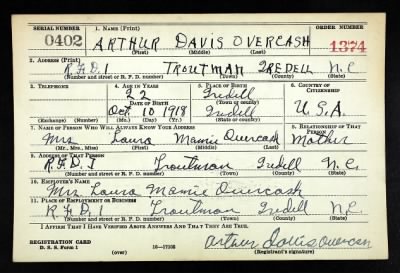 SERIAL NUMBER 1. NAME (Print) ORDER NUMBER
0402 ARTHUR DAVIS OVERCASH 1374
(First) (Middle) (Last)
2. ADDRESS (Print)
R.F.D. 1 TROUTMAN IREDELL N.C.
(Number and street or R. F. D. number) (Town) (County) (State)
3. TELEPHONE 4. AGE IN YEARS 5. PLACE OF BIRTH 6. COUNTRY OF CITIZENSHIP
22 Iredell
DATE OF BIRTH (Town or county)
Oct. 10 1918 N.C. U.S.A.
(Exchange) (Number) (Mo.) (Day) (Yr.) (State or country)
7. NAME OF PERSON WHO WILL ALWAYS KNOW YOUR ADDRESS 8. RELATIONSHIP OF THAT PERSON
Mrs Laura Mamie Overcash Mother
(Mr., Mrs., Miss) (First) (Middle) (Last)
9. ADDRESS OF THAT PERSON
R.F.D. 1 Troutman Iredell N.C.
(Number and street or R. F. D. number) (Town) (County) (State)
10. EMPLOYER'S NAME
Mrs. Laura Mamie Overcash
11. PLACE OF EMPLOYMENT OR BUSINESS
R.F.D. 1 Troutman Iredell N.C.
(Number and street or R. F. D. number) (Town) (County) (State)
I AFFIRM THAT I HAVE VERIFIED ABOVE ANSWERS AND THAT THEY ARE TRUE.
REGISTRATION CARD Arthur Davis Overcash
D. S. S. Form 1 (over) 16—17105 (Registrant's signature)